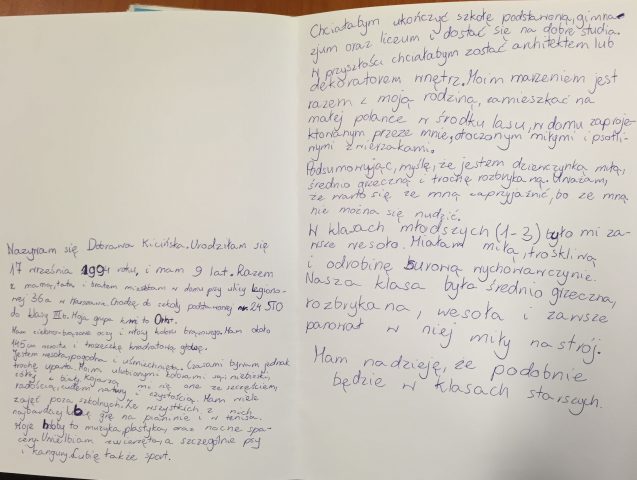 Nazywam się Dobrawa Kicińska. Urodziłam się
17 września 1994 roku, i mam 9 lat. Razem
z mamą, tatą i bratem mieszkam w domu przy ulicy Legiono-
wej 36a w Chodzę do szkoły podstawowej nr 24 STO
do klasy III b. Moja grupa krwi to 0rh+.
Mam ciemno-brązowe oczy i włosy koloru brązowego. Mam około
145 cm wzrostu i troszeczkę kwadratową głowę.
Jestem wesoła, pogodna i uśmiechnięta. Czasami bywam jednak
trochę uparta. Moimi ulubionymi kolorami są: niebieski,
żółty i biały. Kojarzą mi się one ze szczęściem,
radością, cudem natury i czystością. Mam wiele
zajęć poza szkolnych. Ze wszystkich z nich
najbardziej lubię grę na pianinie i w tenisa.
Moje hobby to muzyka, plastyka, oraz nocne spa-
cery. Uwielbiam zwierzęta, a szczególnie psy
i kangury. Lubię także sport.
Chciałabym ukończyć szkołę podstawową, gimna-
zjum oraz liceum i dostać się na dobre studia.
W przyszłości chciałabym zostać architektem lub
dekoratorem wnętrz. Moim marzeniem jest
razem z moją rodziną, zamieszkać na
małej polance w środku lasu, w domu zaproje-
ktowanym przeze mnie, otoczonym miłymi i psotli-
wymi zwierzakami.
Podsumowując, myślę, że jestem dziewczynką miłą,
średnio grzeczną i trochę rozbrykaną. Uważam,
że warto się ze mną zaprzyjaźnić, bo ze mną
nie można się nudzić.
W klasach młodszych (1-3) było mi za-
wsze wesoło. Miałam miłą, troskliwą
i odrobinę surową wychowawczynię.
Nasza klasa była średnio grzeczna,
rozbrykana, wesoła i zawsze
panował w niej miły nastrój.
Mam nadzieję, że podobnie
będzie w klasach starszych.